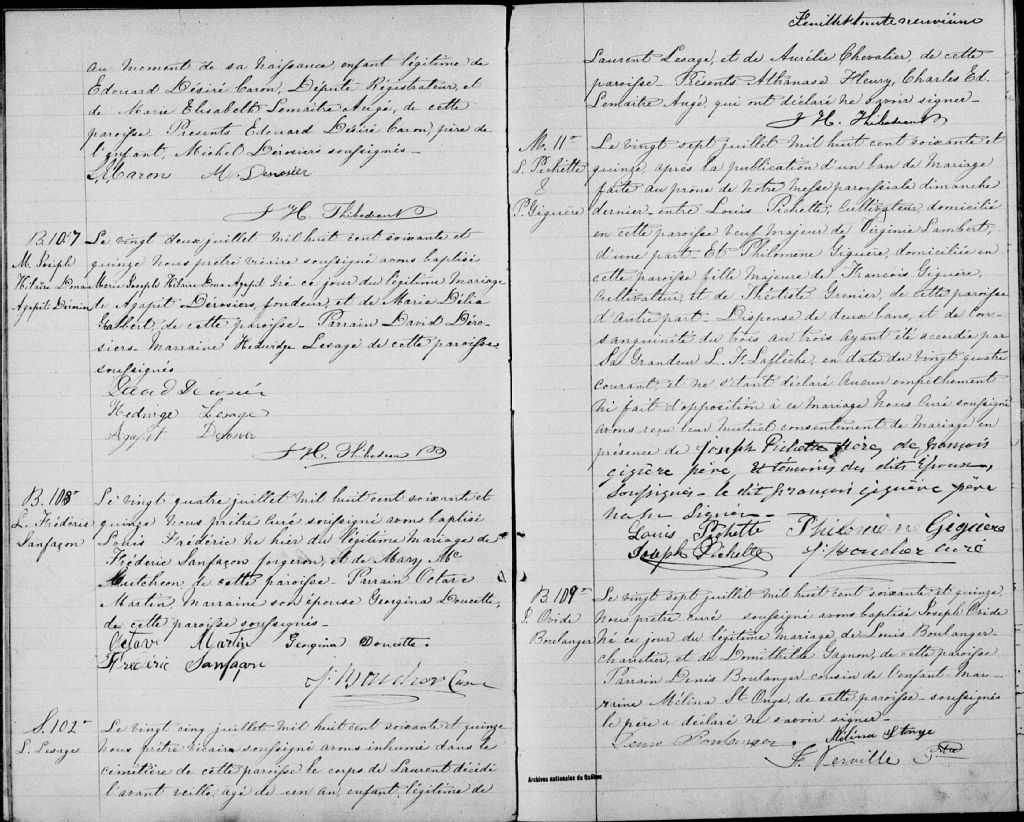 au moment de sa naissance, enfant légitime de
Edouard Désiré Caron, Député Régistrateur, et
de Marie Elisabeth Lemaître Augé, de cette
paroisse. Présents Edouard Désiré Caron, père de
l'enfant, Michel Dérosiers soussignés_
Caron M. Derosier
J H. Thibodeau
B. 107
M. Joseph
Hilaire Enna
Agapit Derosier
Le vingt deux juillet Mil huit cent soixante et
quinze Nous prêtre vicaire soussigné avons baptisé
Marie Joseph Hilaire Enna Agapit Né ce jour du légitime Mariage
de Agapit Dérosiers, fondeur, et de Marie Délia
Galbert, de cette paroisse_ Parrain David Déro-
siers_ Marraine Heduidge Lesage de cette paroisse
soussignés
David Derosier
Heduige Lesage
Agapit Derosier
J H. Thibodeau
B. 108
L. Frédéric
Sanfaçon
Le vingt quatre juillet Mil huit cent soixante et
quinze Nous prêtre Curé soussigné avons baptisé
Louis Frédéric né hier du légitime mariage de
Frédéric Sanfaçon forgeron, et de Mary Mc
Hutcheon de cette paroisse. Parrain Octave
Martin, Marraine son épouse Georgina Doucette,
de cette paroisse soussignés_
Octave Martin Georgina Doucette.
Frederic Sanfaçon
J. Boucher Curé
S. 102
L. Lesage
Le vingt cinq juillet Mil huit cent soixante et quinze
Nous prêtre vicaire soussigné avons inhumé dans le
cimetière de cette paroisse le corps de Laurent décédé
l'avant veille, agé de un an, enfant légitime de
Feuillet trente neuvième
Laurent Lesage, et de Aurélie Chevalier, de cette
paroisse_ Présents Athanase Fleury, Charles Ed.
Lemaître Augé, qui ont déclaré ne savoir signer_
J H. Thibodeau
M. 11
L. Pichette
&
P. Giguère
Le vingt sept juillet Mil huit cent soixante et
quinze, après la publication d'un ban de Mariage
faite au prône de notre Messe paroissiale dimanche
dernier_ entre Louis Pichette, Cultivateur, domicilié
en cette paroisse veuf majeur de Virginie Lambert,
d'une part_ Et Philomène Giguère, domiciliée en
cette paroisse fille Majeure de François Giguère,
Cultivateur, et de Théotiste Grenier, de cette paroisse
d'autre part_ Dispense de deux bans, et de Con-
sanguinité du trois au trois ayant été accordée par
Sa Grandeur L. F. Laflèche, en date du vingt quatre
courant, et ne s'étant déclaré Aucun empêchement
Ni fait d'opposition à ce Mariage Nous Curé soussigné
avons reçu leur mutuel consentement de Mariage en
présence de Joseph Pichette frère, de françois
gigière père, et témoins des dits Epoux,
soussignés_ le dit françois giguère père
na su signer_
Louis Pichette Philomène Giguère
Joseph Pichette J. Boucher curé
B. 109
J. Ovide
Boulanger
Le vingt sept juillet Mil huit cent soixante et quinze,
Nous prêtre Curé soussigné avons baptisé Joseph Ovide
Né ce jour du légitime Mariage, de Louis Boulanger
charretier, et de Domithilde Gagnon, de cette paroisse
Parrain Denis Boulanger cousin de l'enfant_ Mar-
raine Mélina St Onge, de cette paroisse_ soussignés
le père a déclaré ne savoir signer_
Denis Boulanger. Mélina Stonge
F. Verville Ptre
Archives nationales du Québec